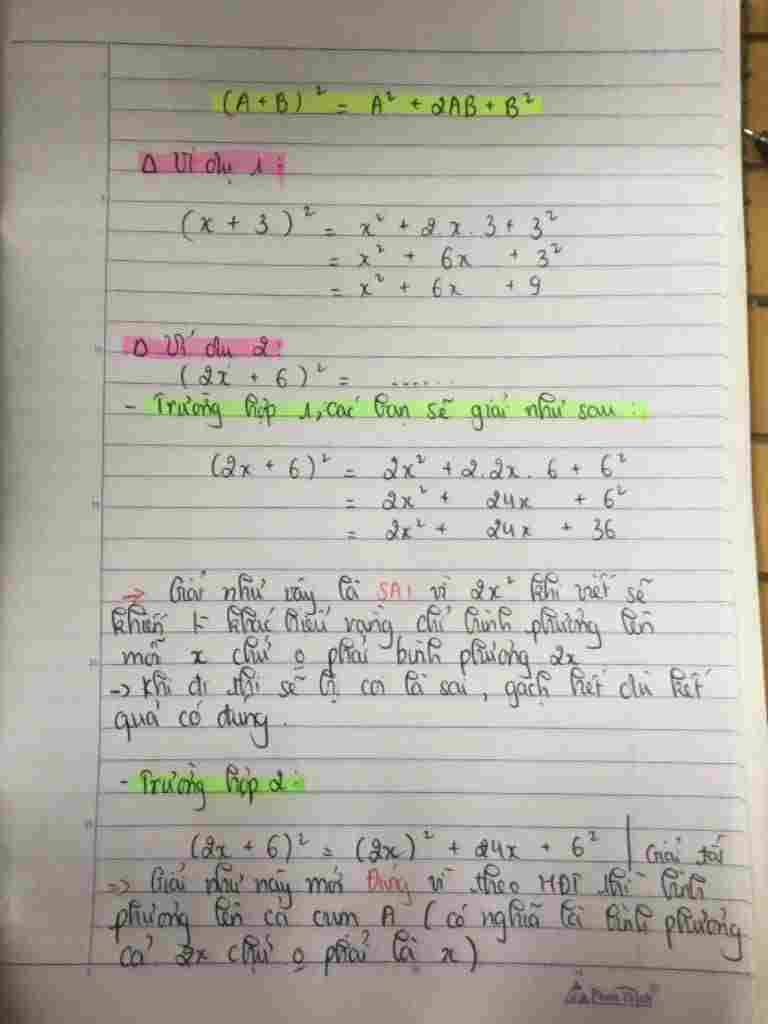 (A + B)² = A² + 2AB + B²
Δ Ví dụ 1:
(x + 3)² = x² + 2.x.3 + 3²
= x² + 6x + 3²
= x² + 6x + 9
Δ Ví dụ 2:
(2x + 6)² = .......
- Trường hợp 1, các bạn sẽ giải như sau:
(2x + 6)² = 2x² + 2.2x.6 + 6²
= 2x² + 24x + 6²
= 2x² + 24x + 36
→ Giải như vậy là SAI vì 2x² khi viết sẽ
khiến khác hiểu rằng chỉ bình phương lên
mỗi x chứ o phải bình phương 2x
→ Khi đi thi sẽ bị coi là sai, gạch hết dù kết
quả có đúng.
- Trường hợp 2:
(2x + 6)² = (2x)² + 24x + 6² | Giải tắt
=> Giải như này mới Đúng vì theo HĐT thì bình
phương lên cả cụm A (có nghĩa là bình phương
cả 2x chứ o phải là x)